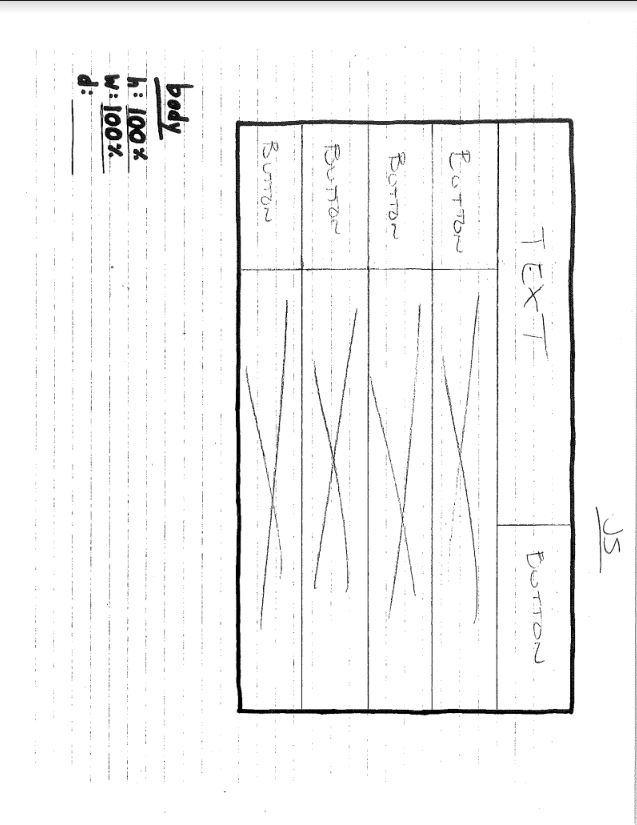 JS
TEXT BUTTON
BUTTON
BUTTON
BUTTON
BUTTON
body
h: 100%
w: 100%